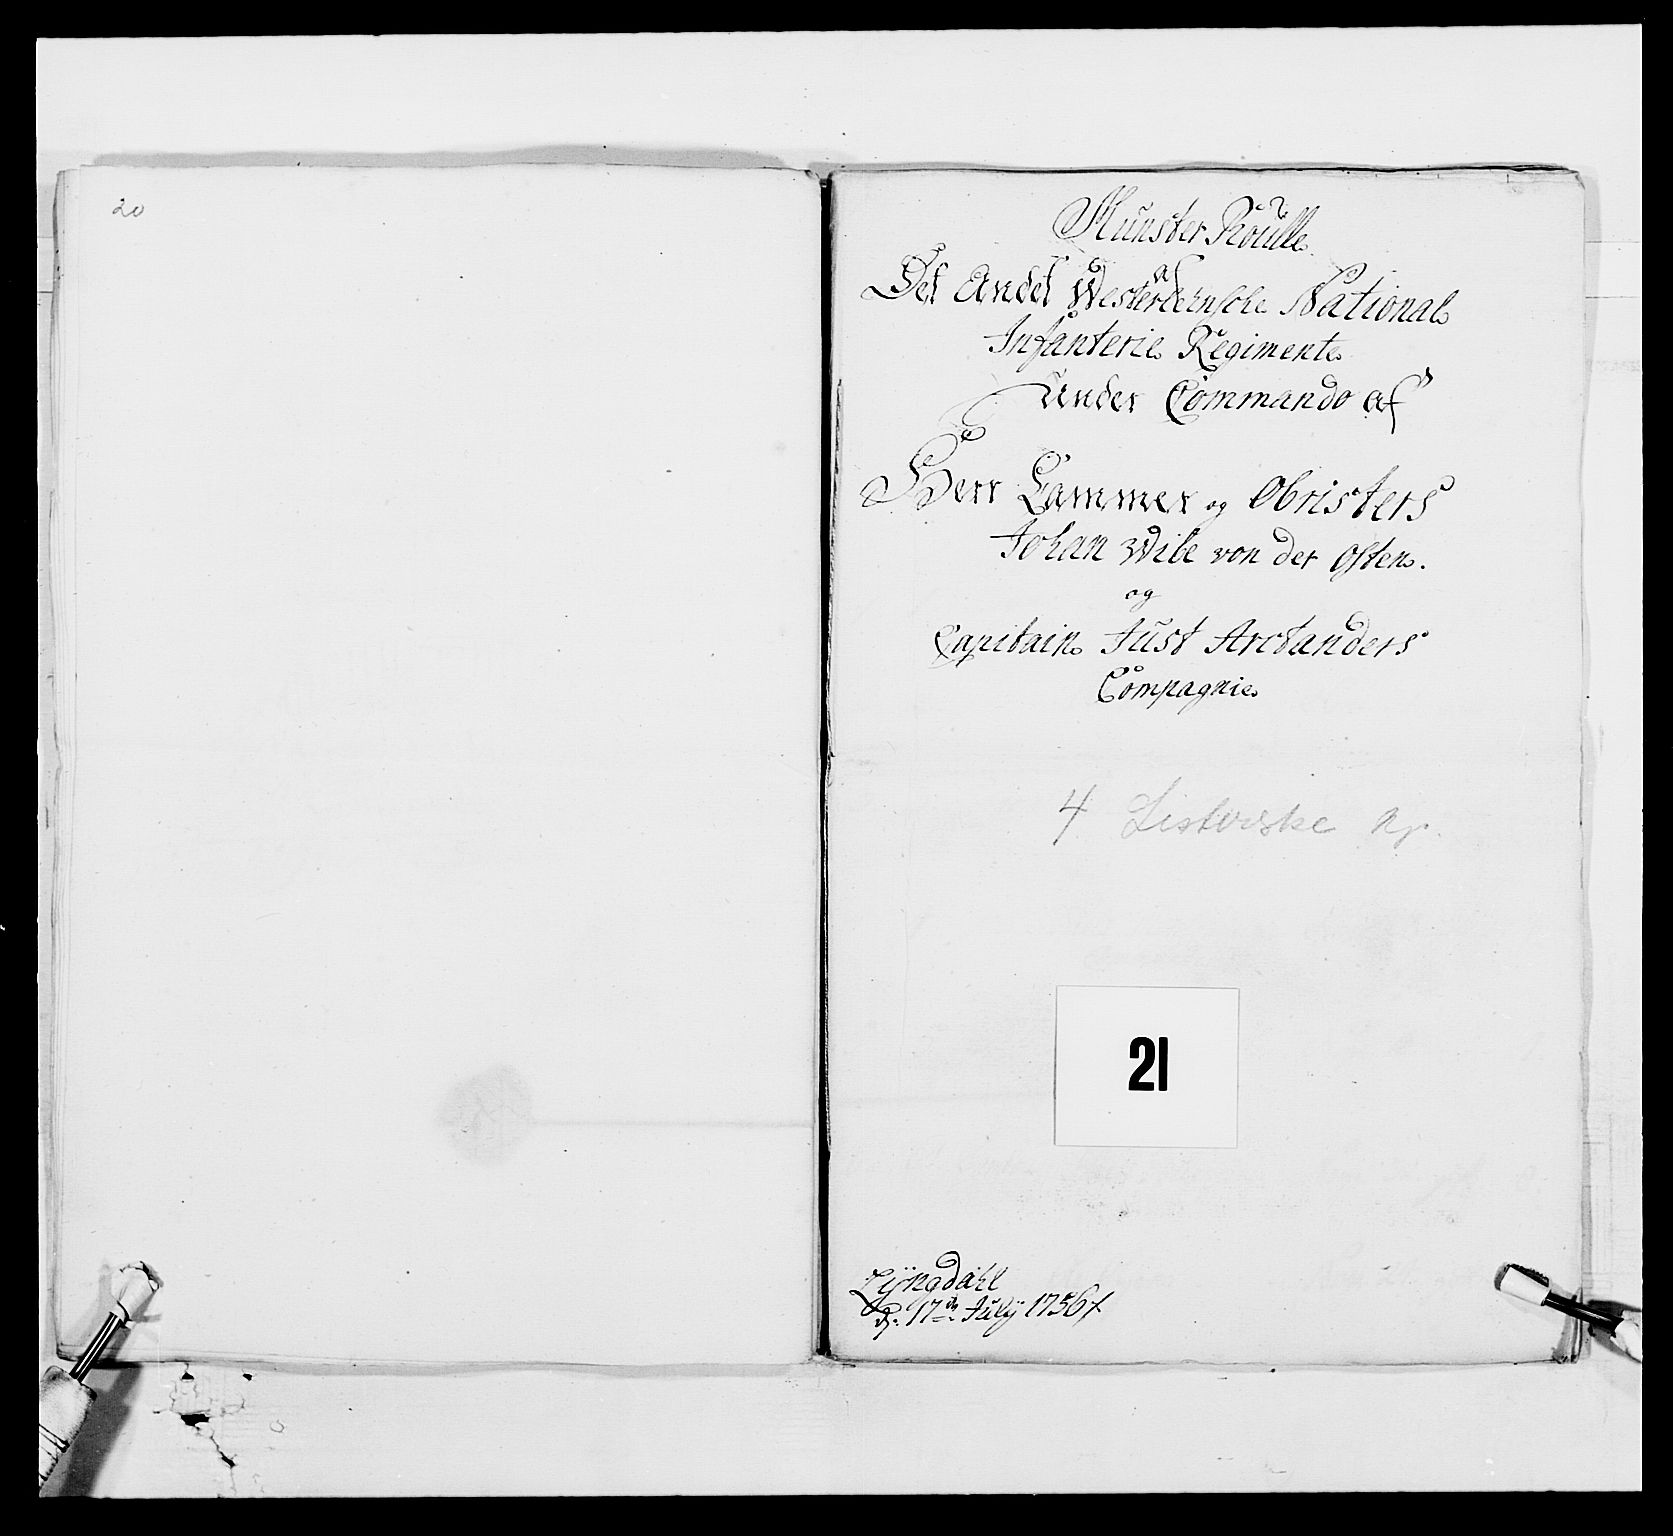 20
Munster Roulle
af
Det Andet Westerlehnsche National
Infanterie Regimente
under Commando af
Herr Cammer og Obristers
Johan Wibe von der Osten.
og
Capitain Just Arctanders
Compagnie
4 Listerske kp.
21
Lyngdahl
d. 17de July 1756